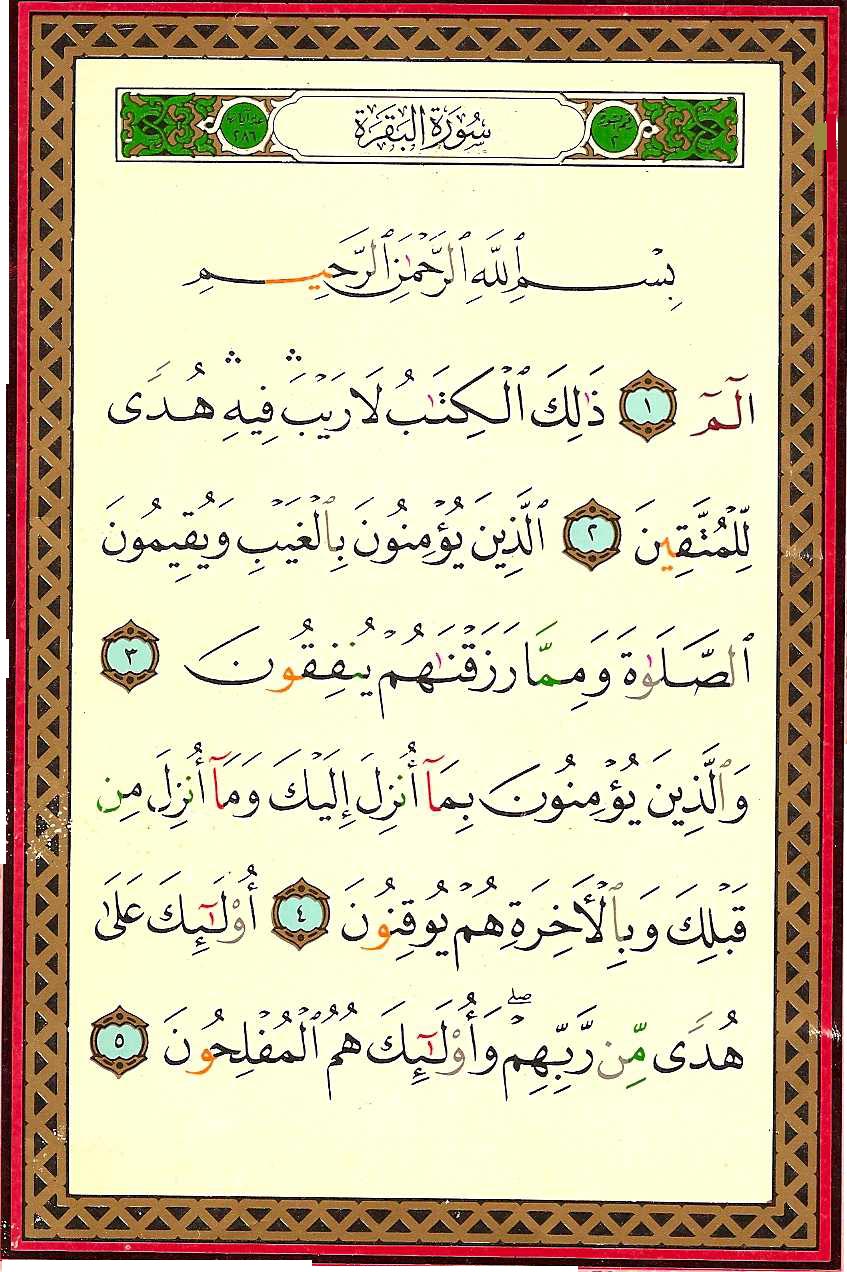 سُورَةُ البَقَرَةِ
٢٨٦
بِسْمِ ٱللَّهِ ٱلرَّحْمَٰنِ ٱلرَّحِيمِ
الٓمٓ ١ ذَٰلِكَ ٱلْكِتَٰبُ لَا رَيْبَ ۛ فِيهِ ۛ هُدًى
لِّلْمُتَّقِينَ ٢ ٱلَّذِينَ يُؤْمِنُونَ بِٱلْغَيْبِ وَيُقِيمُونَ
ٱلصَّلَوٰةَ وَمِمَّا رَزَقْنَٰهُمْ يُنفِقُونَ ٣
وَٱلَّذِينَ يُؤْمِنُونَ بِمَآ أُنزِلَ إِلَيْكَ وَمَآ أُنزِلَ مِن
قَبْلِكَ وَبِٱلْأَخِرَةِ هُمْ يُوقِنُونَ ٤ أُوْلَٰٓئِكَ عَلَىٰ
هُدًى مِّن رَّبِّهِمْ ۖ وَأُوْلَٰٓئِكَ هُمُ ٱلْمُفْلِحُونَ ٥